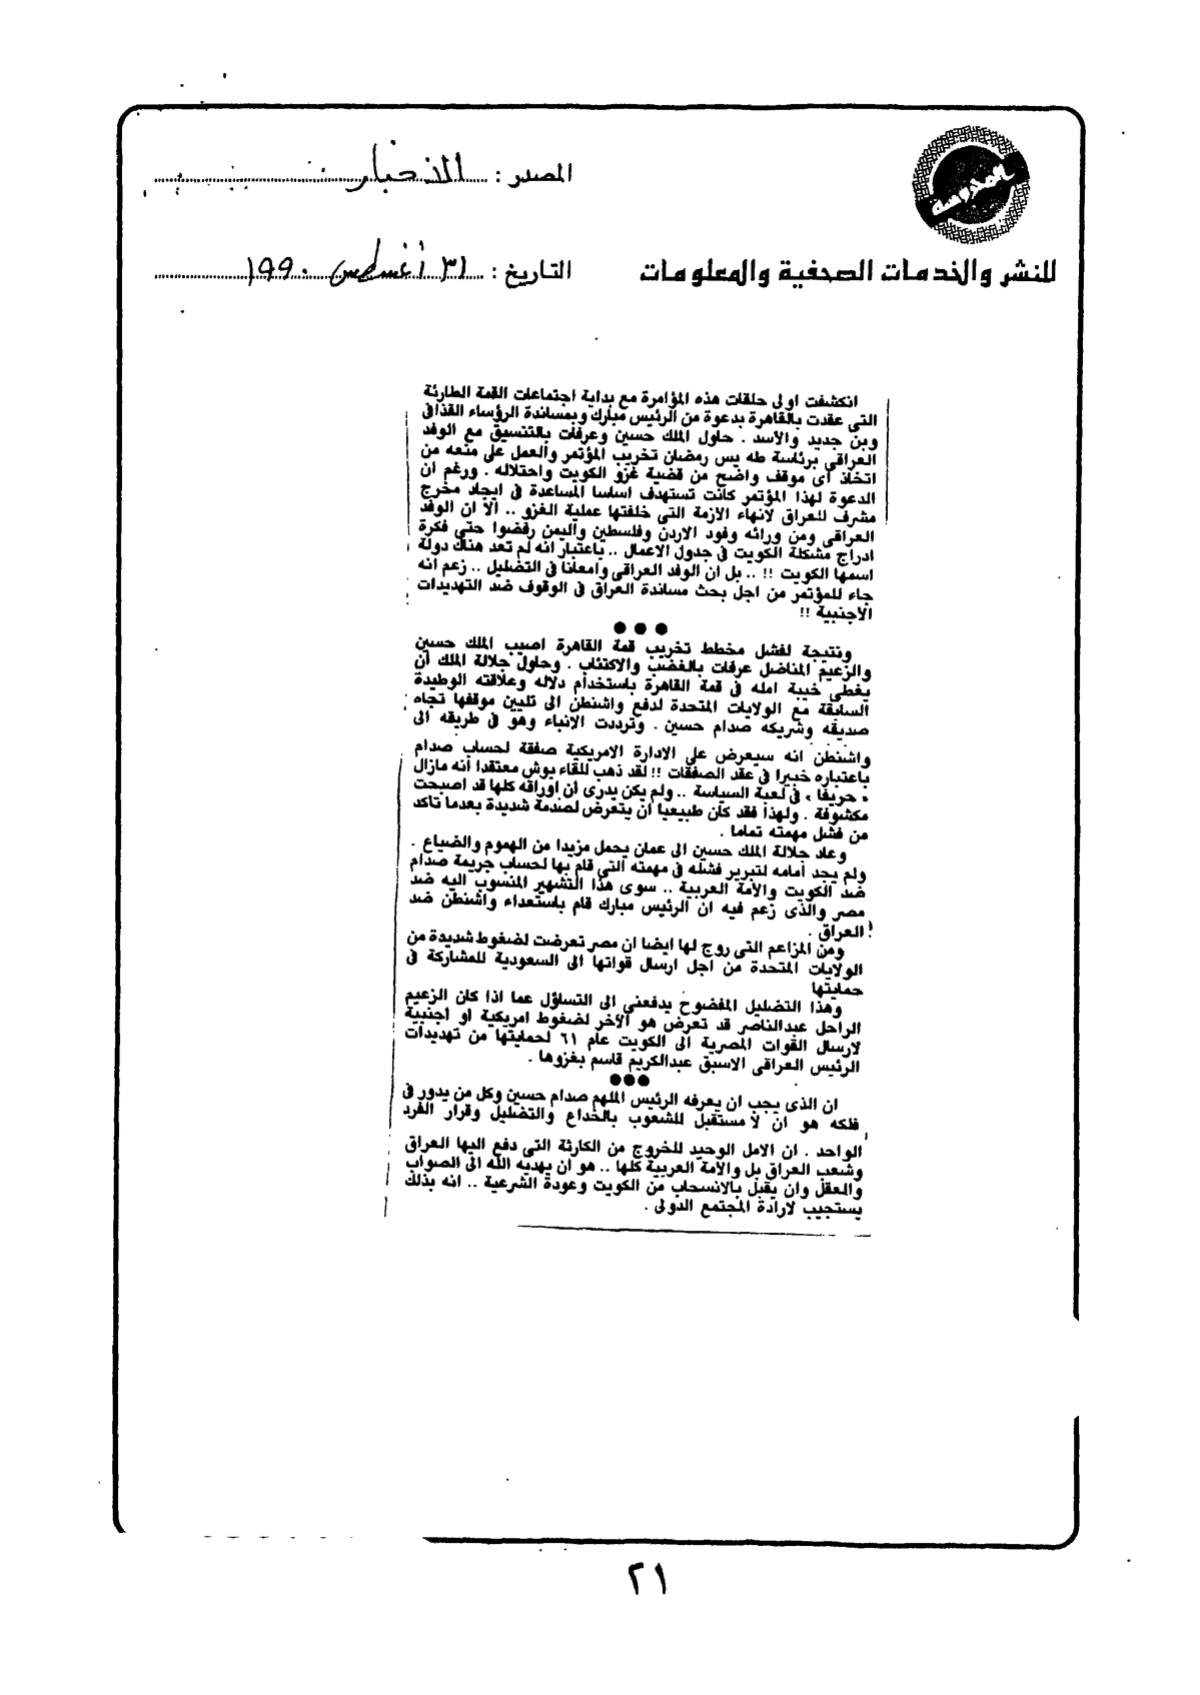 المصدر : الأخبار
للنشر والخدمات الصحفية والمعلومات
التاريخ : ٣١ أغسطس ١٩٩٠
انكشفت اولى حلقات هذه المؤامرة مع بداية اجتماعات القمة الطارئة
التى عقدت بالقاهرة بدعوة من الرئيس مبارك وبمساندة الرؤساء القذافى
وبن جديد والأسد . حاول الملك حسين وعرفات بالتنسيق مع الوفد
العراقى برئاسة طه يس رمضان تخريب المؤتمر والعمل على منعه من
اتخاذ أى موقف واضح من قضية غزو الكويت واحتلاله . ورغم ان
الدعوة لهذا المؤتمر كانت تستهدف اساسا المساعدة فى ايجاد مخرج
مشرف للعراق لانهاء الازمة التى خلفتها عملية الغزو .. الا ان الوفد
العراقى ومن ورائه وفود الاردن وفلسطين واليمن رفضوا حتى فكرة
ادراج مشكلة الكويت فى جدول الاعمال .. باعتبار انه لم تعد هناك دولة
اسمها الكويت !! .. بل ان الوفد العراقى وامعانا فى التضليل .. زعم انه
جاء للمؤتمر من اجل بحث مساندة العراق فى الوقوف ضد التهديدات
الاجنبية !!
● ● ●
ونتيجة لفشل مخطط تخريب قمة القاهرة اصيب الملك حسين
والزعيم المناضل عرفات بالغضب والاكتئاب . وحاول جلالة الملك أن
يغطى خيبة امله فى قمة القاهرة باستخدام دلاله وعلاقته الوطيدة
السابقة مع الولايات المتحدة لدفع واشنطن الى تليين موقفها تجاه
صديقه وشريكه صدام حسين . وترددت الانباء وهو فى طريقه الى
واشنطن انه سيعرض على الادارة الامريكية صفقة لحساب صدام
باعتباره خبيرا فى عقد الصفقات !! لقد ذهب للقاء بوش معتقدا أنه مازال
« حريفا » فى لعبة السياسة .. ولم يكن يدرى ان اوراقه كلها قد اصبحت
مكشوفة . ولهذا فقد كان طبيعيا ان يتعرض لصدمة شديدة بعدما تأكد
من فشل مهمته تماما .
وعاد جلالة الملك حسين الى عمان يحمل مزيدا من الهموم والضياع .
ولم يجد أمامه لتبرير فشله فى مهمته التى قام بها لحساب جريمة صدام
ضد الكويت والأمة العربية .. سوى هذا التشهير المنسوب اليه ضد
مصر والذى زعم فيه ان الرئيس مبارك قام باستعداء واشنطن ضد
العراق .
ومن المزاعم التى روج لها ايضا ان مصر تعرضت لضغوط شديدة من
الولايات المتحدة من اجل ارسال قواتها الى السعودية للمشاركة فى
حمايتها
وهذا التضليل المفضوح يدفعنى الى التساؤل عما اذا كان الزعيم
الراحل عبدالناصر قد تعرض هو الآخر لضغوط امريكية او اجنبية
لارسال القوات المصرية الى الكويت عام ٦١ لحمايتها من تهديدات
الرئيس العراقى الاسبق عبدالكريم قاسم بغزوها .
●●●
ان الذى يجب ان يعرفه الرئيس الملهم صدام حسين وكل من يدور فى
فلكه هو ان لا مستقبل للشعوب بالخداع والتضليل وقرار الفرد
الواحد . ان الامل الوحيد للخروج من الكارثة التى دفع اليها العراق
وشعب العراق بل والأمة العربية كلها .. هو ان يهديه الله الى الصواب
والعقل وان يقبل بالانسحاب من الكويت وعودة الشرعية .. انه بذلك
يستجيب لارادة المجتمع الدولى .
٢١